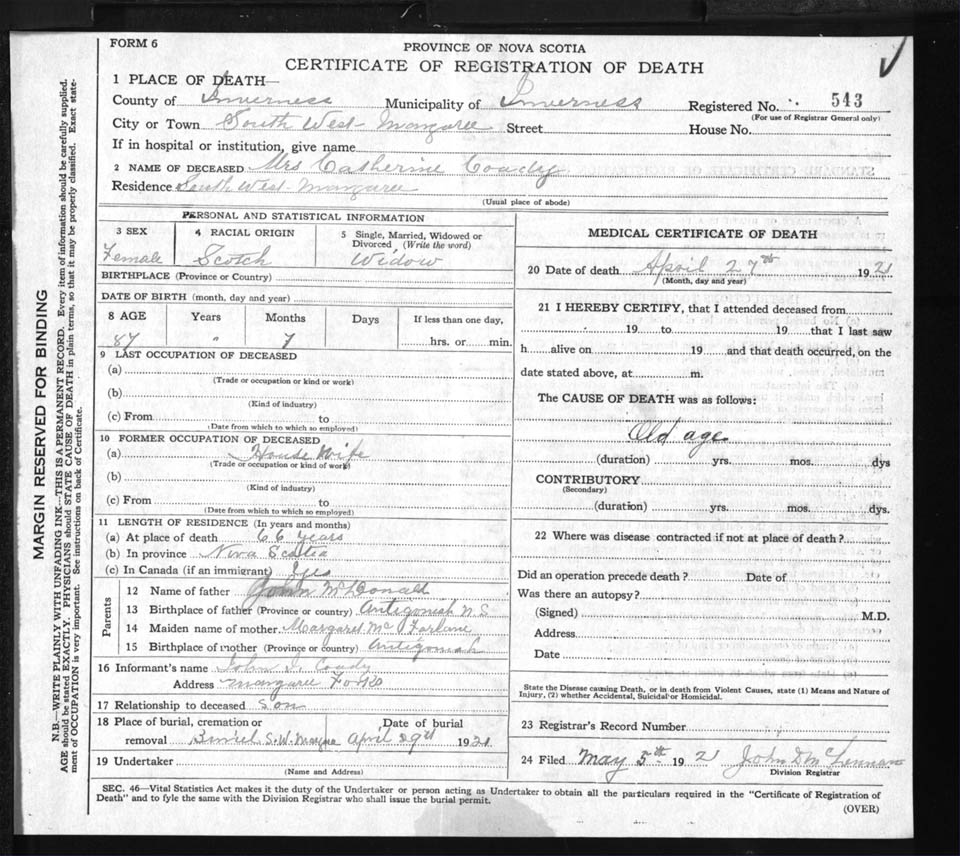 FORM 6
PROVINCE OF NOVA SCOTIA
CERTIFICATE OF REGISTRATION OF DEATH
1 PLACE OF DEATH—
County of Inverness Municipality of Inverness Registered No. 543
(For use of Registrar General only)
City or Town South West Margaree Street House No.
If in hospital or institution, give name
2 NAME OF DECEASED Mrs Catherine Coady
Residence South West Margaree
(Usual place of abode)
PERSONAL AND STATISTICAL INFORMATION
3 SEX
Female
4 RACIAL ORIGIN
Scotch
5 Single, Married, Widowed or
Divorced (Write the word)
Widow
BIRTHPLACE (Province or Country)
DATE OF BIRTH (month, day and year)
8 AGE Years Months Days If less than one day,
87 " 7 hrs. or min.
9 LAST OCCUPATION OF DECEASED
(a)
(Trade or occupation or kind or work)
(b)
(Kind of industry)
(c) From to
(Date from which to which so employed)
10 FORMER OCCUPATION OF DECEASED
(a) House Wife
(Trade or occupation or kind of work)
(b)
(Kind of industry)
(c) From to
(Date from which to which so employed)
11 LENGTH OF RESIDENCE (In years and months)
(a) At place of death 66 years
(b) In province Nova Scotia
(c) In Canada (if an immigrant)
Parents
12 Name of father John McDonald
13 Birthplace of father (Province or country) Antigonish N.S
14 Maiden name of mother Margaret McFarlane
15 Birthplace of mother (Province or country) Antigonish
16 Informant's name John J. Coady
Address Margaree Forks
17 Relationship to deceased Son
18 Place of burial, cremation or Date of burial
removal S.W. April 29th 1921
19 Undertaker
(Name and Address)
MEDICAL CERTIFICATE OF DEATH
20 Date of death April 27th 1921
(Month, day and year)
21 I HEREBY CERTIFY, that I attended deceased from
19 to 19 that I last saw
h alive on 19 and that death occurred, on the
date stated above, at m.
The CAUSE OF DEATH was as follows:
Old age
(duration) yrs. mos. dys
CONTRIBUTORY
(Secondary)
(duration) yrs. mos. dys.
22 Where was disease contracted if not at place of death?
Did an operation precede death? Date of
Was there an autopsy?
(Signed) M.D.
Address
Date
State the Disease causing Death, or in death from Violent Causes, state (1) Means and Nature of
Injury, (2) whether Accidental, Suicidal or Homicidal.
23 Registrar's Record Number
24 Filed May 5th 1921 John D McLennan
Division Registrar
SEC. 46—Vital Statistics Act makes it the duty of the Undertaker or person acting as Undertaker to obtain all the particulars required in the "Certificate of Registration of
Death" and to fyle the same with the Division Registrar who shall issue the burial permit.
(OVER)
MARGIN RESERVED FOR BINDING
N.B.—WRITE PLAINLY WITH UNFADING INK—THIS IS A PERMANENT RECORD. Every item of information should be carefully supplied.
AGE should be stated EXACTLY. PHYSICIANS should STATE CAUSE OF DEATH in plain terms, so that it may be properly classified. Exact state-
ment of OCCUPATION is very important. See instructions on back of Certificate.